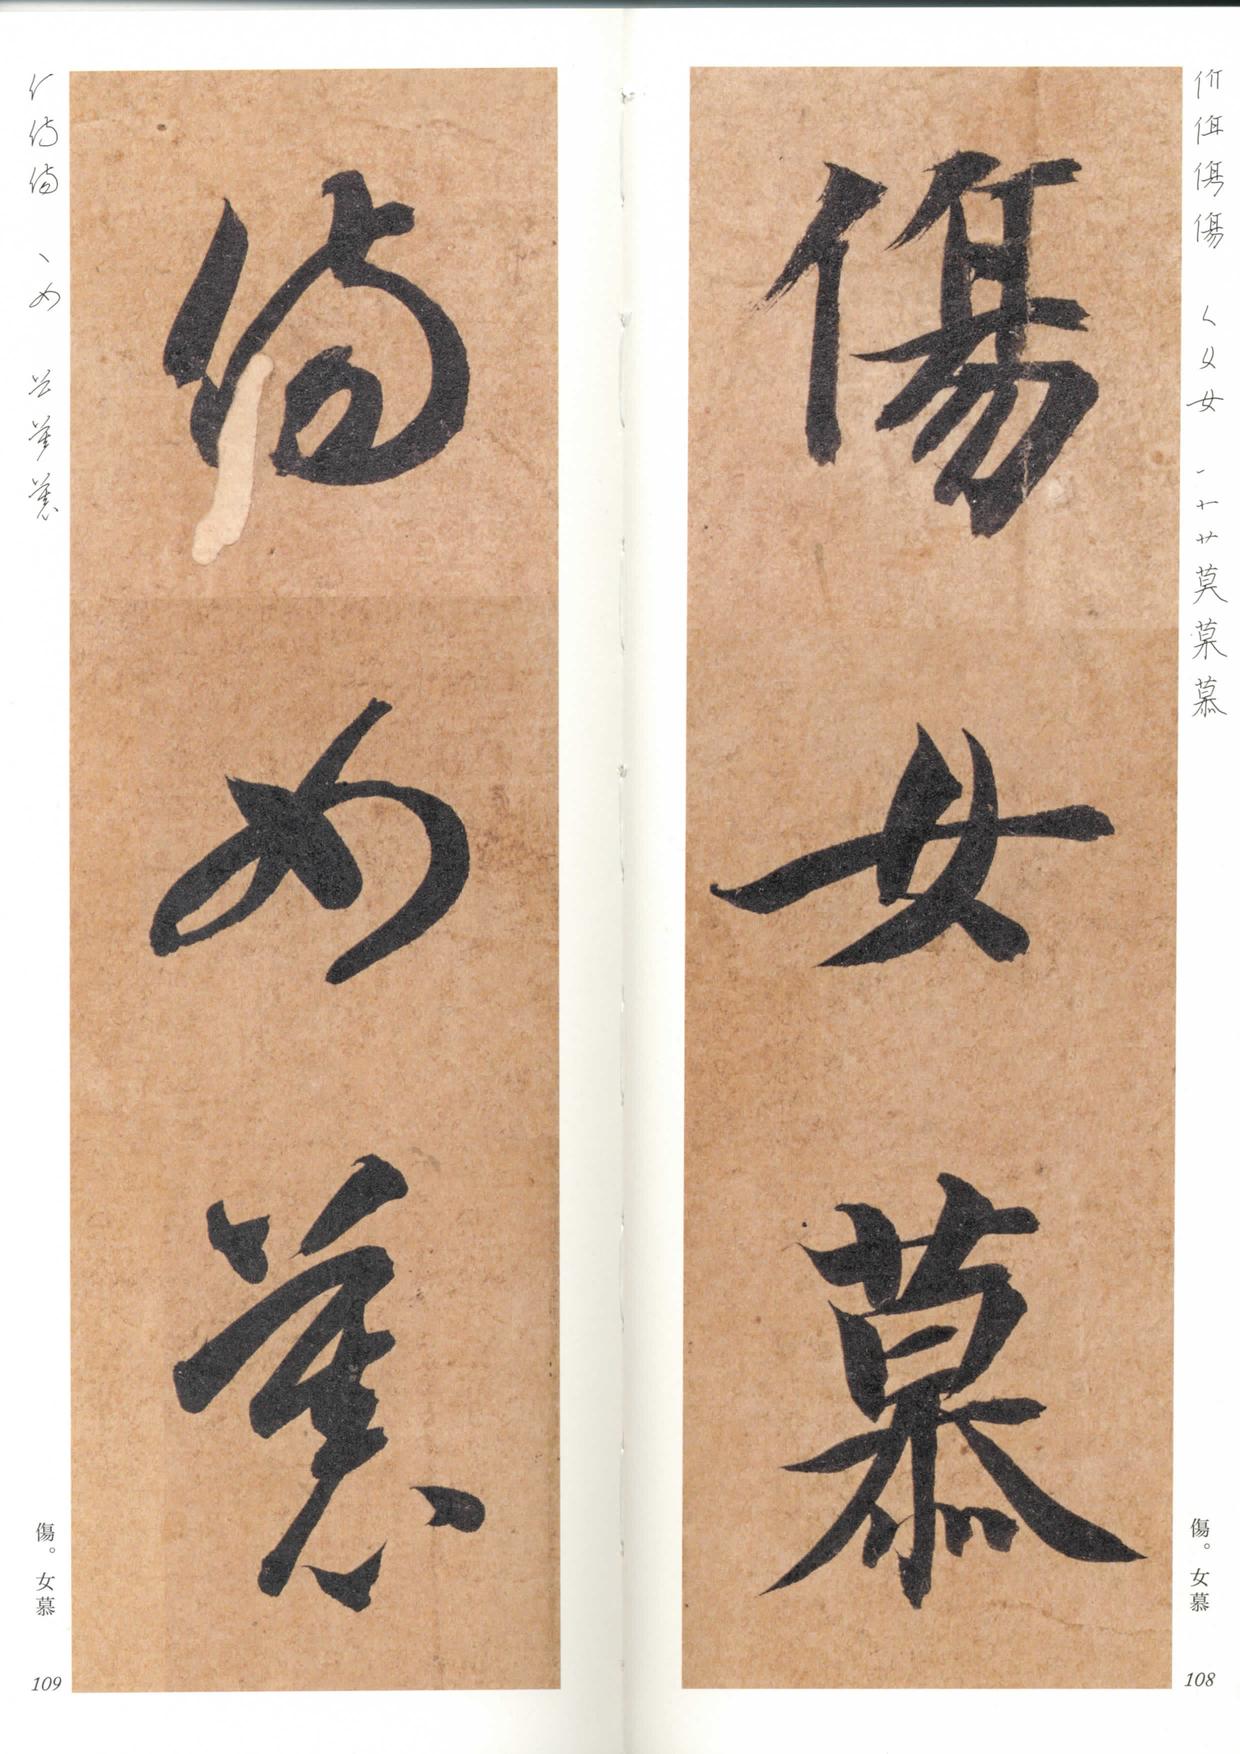 傷女慕
傷。女慕
108
傷女慕
傷。女慕
109